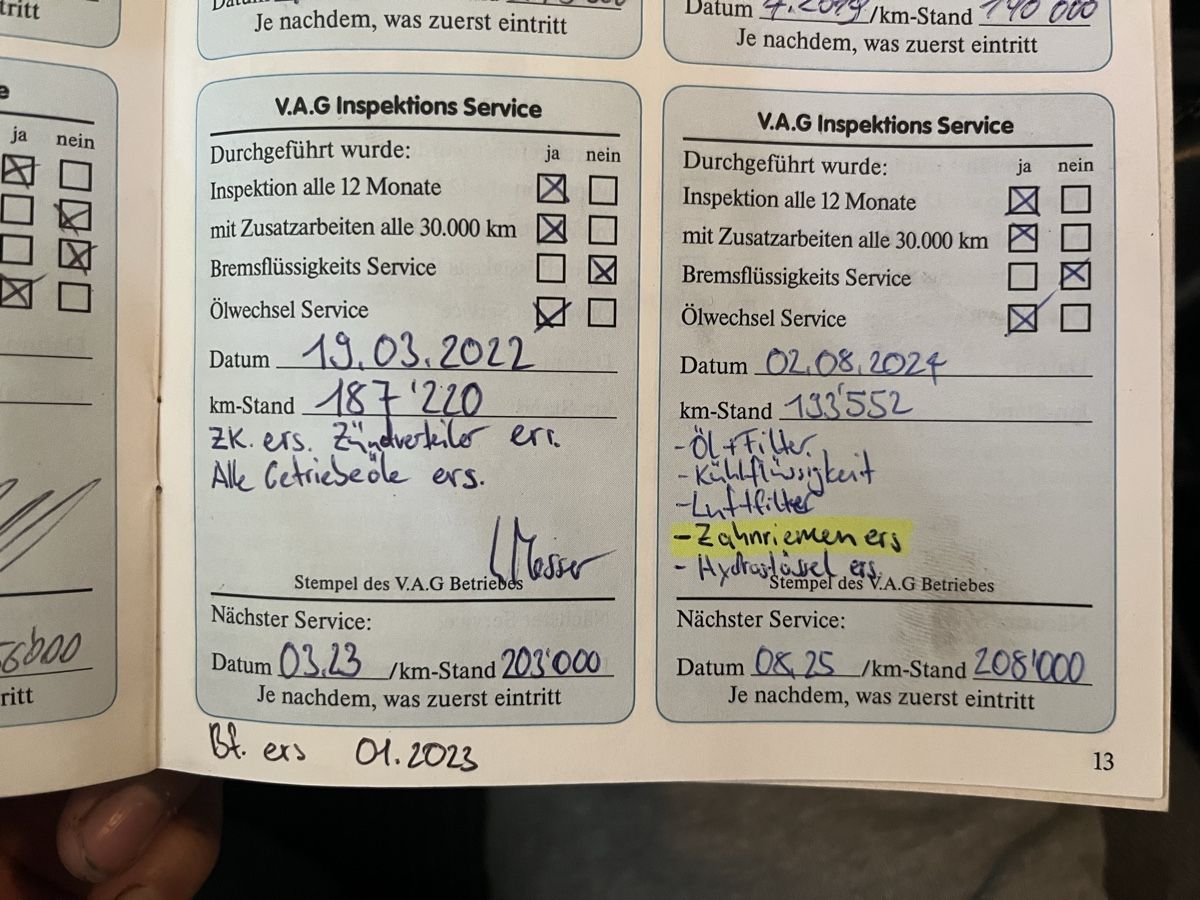 tritt
Je nachdem, was zuerst eintritt
Datum 7.2019 /km-Stand 190 000
Je nachdem, was zuerst eintritt
e
ja nein
56000
ritt
V.A.G Inspektions Service
Durchgeführt wurde: ja nein
Inspektion alle 12 Monate
mit Zusatzarbeiten alle 30.000 km
Bremsflüssigkeits Service
Ölwechsel Service
Datum 19.03.2022
km-Stand 187'220
ZK. ers. Zündverteiler err.
Alle Getriebeöle ers.
Messer
Stempel des V.A.G Betriebes
Nächster Service:
Datum 03.23 /km-Stand 203'000
Je nachdem, was zuerst eintritt
Bf. ers 01.2023
V.A.G Inspektions Service
Durchgeführt wurde: ja nein
Inspektion alle 12 Monate
mit Zusatzarbeiten alle 30.000 km
Bremsflüssigkeits Service
Ölwechsel Service
Datum 02.08.2024
km-Stand 193'552
-Öl+Filter.
-Kühlflüssigkeit
-Luftfilter
-Zahnriemen ers
- Hydrostössel ers.
Stempel des V.A.G Betriebes
Nächster Service:
Datum 08.25 /km-Stand 208'000
Je nachdem, was zuerst eintritt
13